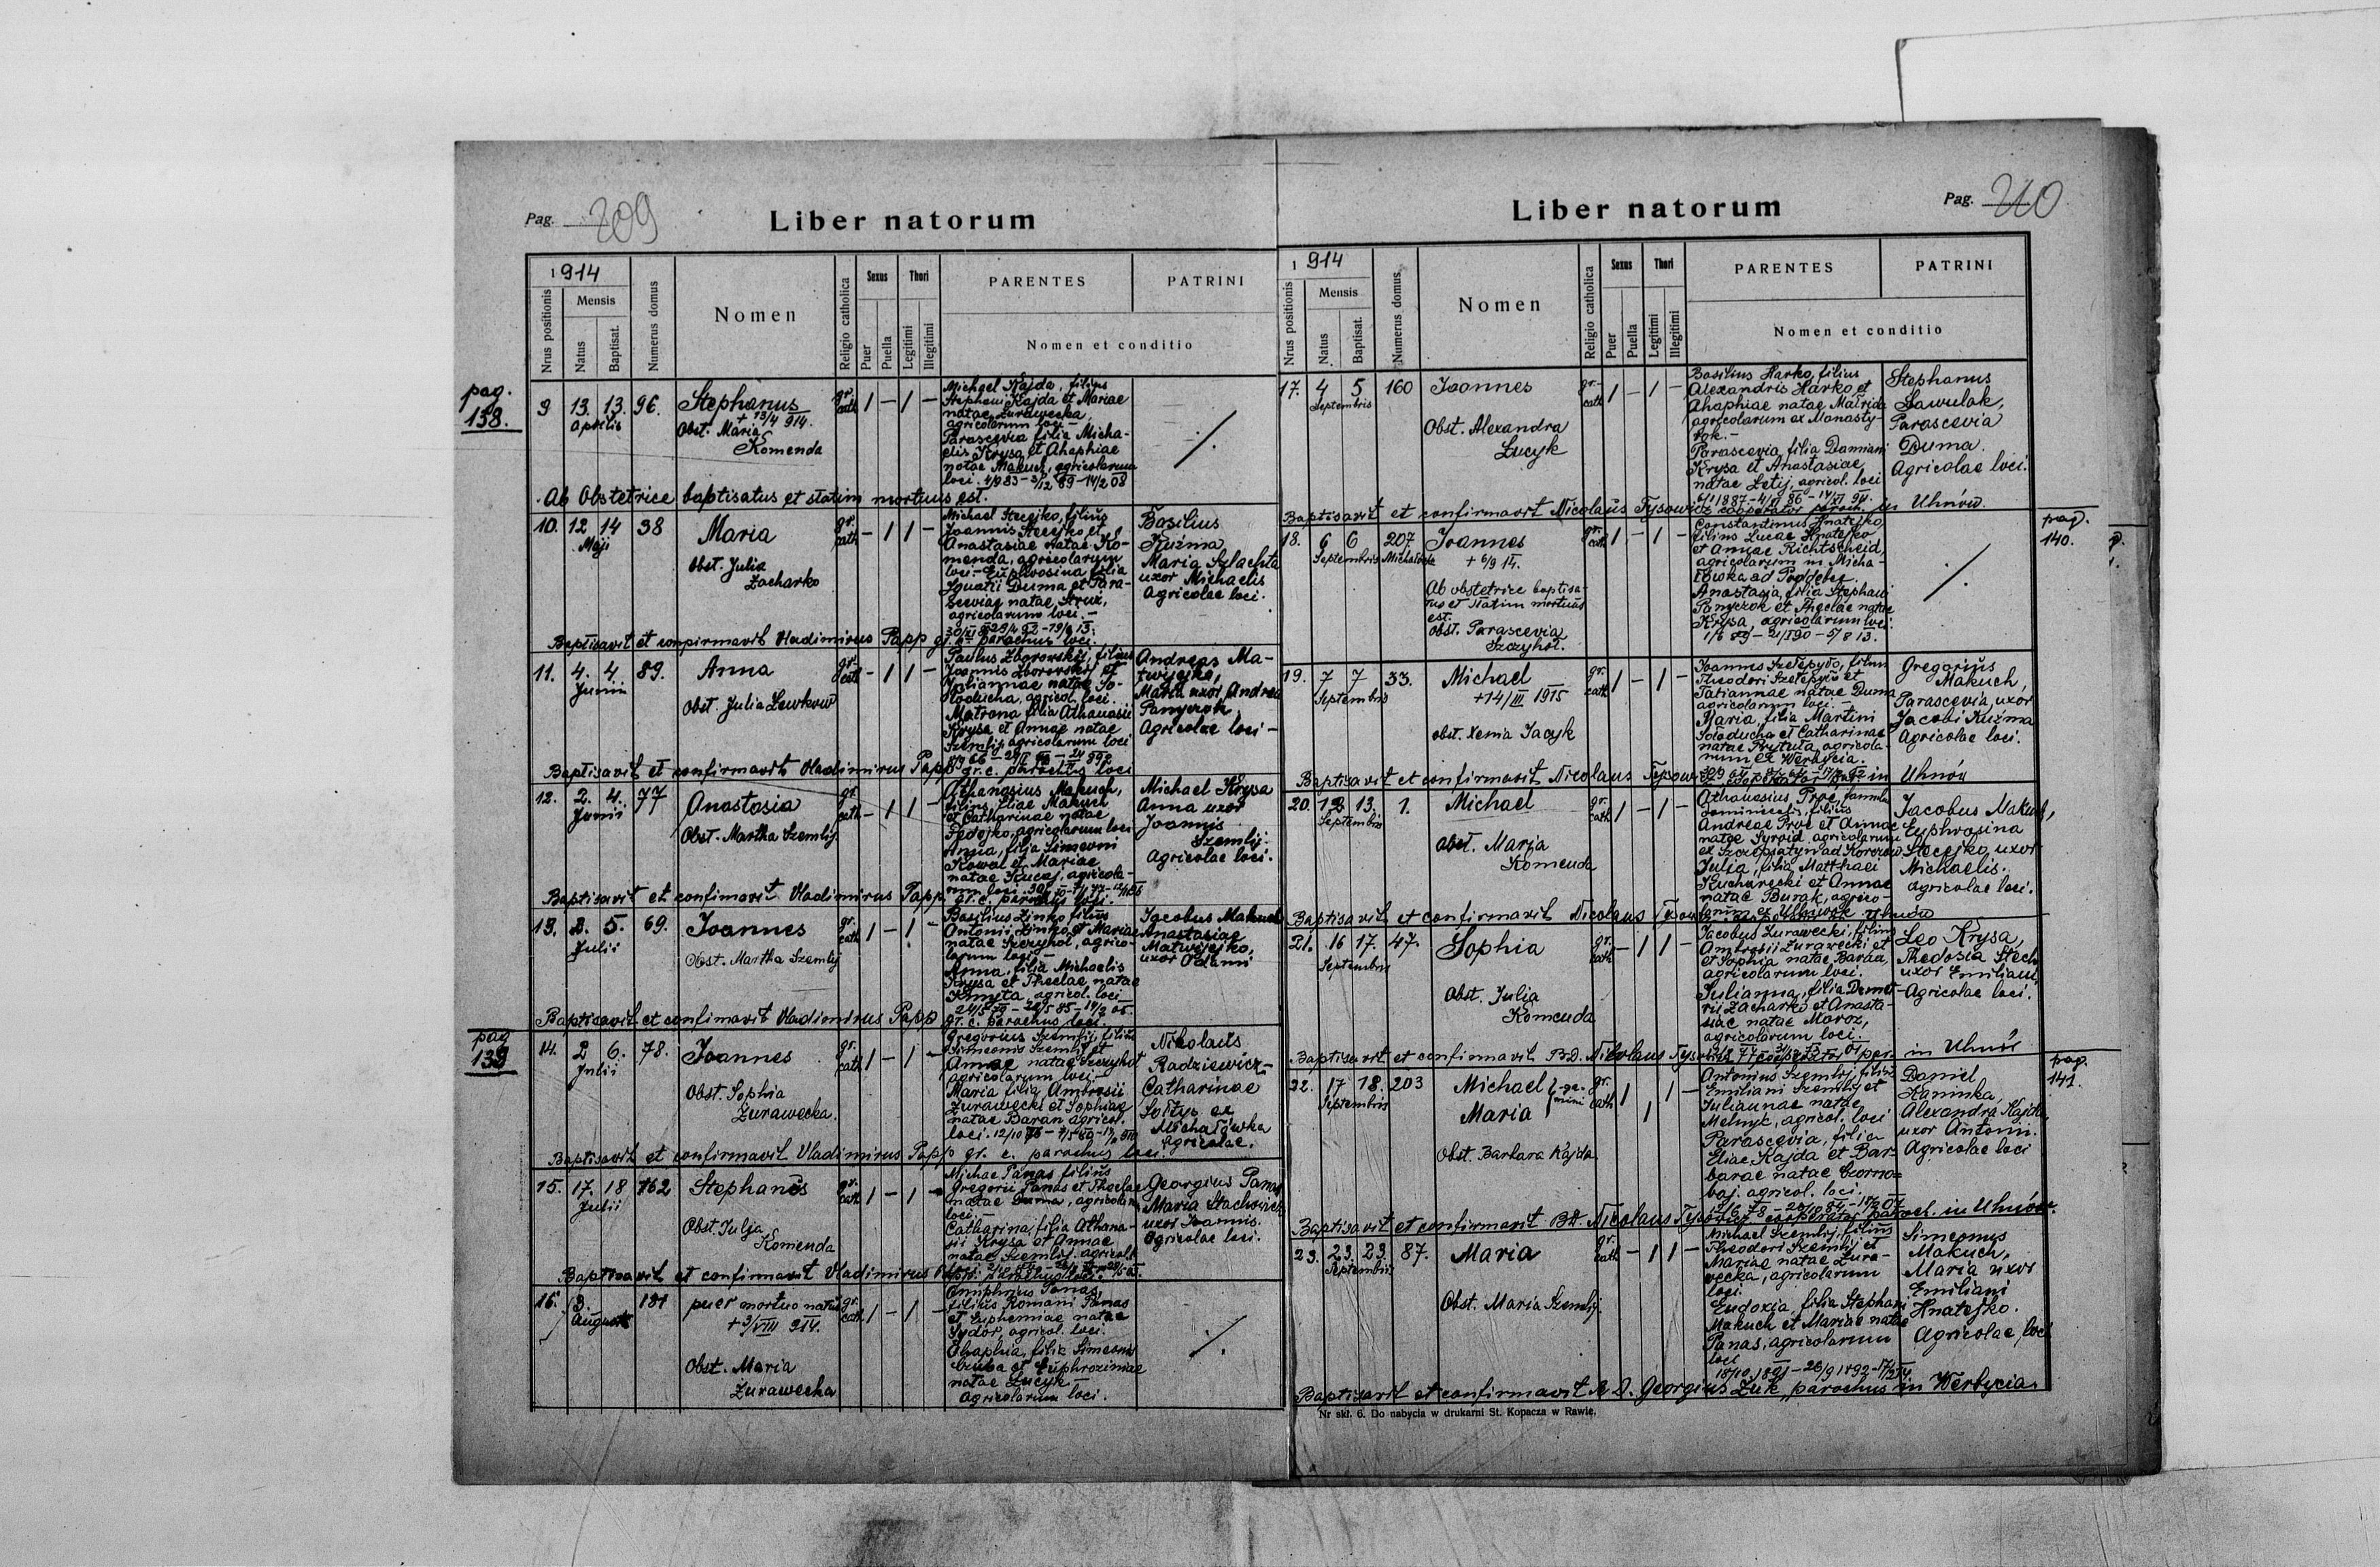 Pag. 209
Liber natorum
1914
Nrus positionis
Mensis
Natus
Baptisat.
Numerus domus
Nomen
Religio catholica
Sexus
Puer
Puella
Thori
Legitimi
Illegitimi
PARENTES
PATRINI
Nomen et conditio
pag.
138.
9 13. 13. 96. Stephanus gr. cath. 1 – 1 –
Aprilis
+ 13/4 914.
Obst. Maria
Komenda
Michael Kajda, filius
Stephani Kajda et Mariae
natae Żurawecka,
agricolarum loci –
Parascevia filia Micha-
elis Krysa et Ahaphiae
natae Makuch, agricolarum
loci.
Ab Obstetrice baptisatus et statim mortuus est.
10. 12 14 38 Maria gr. cath. – 1 1 –
Maji
Obst. Julia
Zacharko
Michael Stecijko, filius
Joannis Stecijko et
Anastasiae natae Ko-
menda, agricolarum
loci – Euphrosina filia
Ignatii Duma et Para-
sceviae natae
agricolarum loci. –
Basilius
Kuźma
Maria Szlachta
uxor Michaelis
Agricolae loci.
Baptisavit et confirmavit Vladimirus Papp gr. c. parochus loci.
11. 4. 4. 89. Anna gr. cath – 1 1 –
Junii
Obst. Julia Lewkow
Paulus Zborowskij, filius
Joannis Zborowskij et
Juliannae natae So-
łoducha, agricol. loci.
Matrona filia Athanasii
Krysa et Annae natae
Szemlij agricolarum loci
Andreas Ma-
twijejko,
Maria uxor Andrea
Panyczok
Agricolae loci –
Baptisavit et confirmavit Vladimirus Papp gr. c. parochus loci
12. 2. 4. 77 Anastasia gr. cath – 1 1 –
Junii
Obst. Martha Szemlij.
Athanasius Makuch,
filius Eliae Makuch
et Catharinae natae
Fedojko, agricolarum loci
Anna, filia Simeoni
Kowal et Mariae
natae Kucaj, agricola-
rum loci.
Michael Krysa
Anna uxor
Joannis
Szemlij.
Agricolae loci.
Baptisavit et confirmavit Vladimirus Papp gr. c. parochus loci.
13. 2. 5. 69. Joannes gr. cath 1 – 1 –
Julii
Obst. Martha Szemlij
Basilius Zinko filius
Antonii Zinko et Mariae
natae Szczyhoł, agrico-
larum loci –
Anna, filia Michaelis
Krysa et Theclae natae
Kmyta, agricol. loci
Jacobus Makuch
Anastasiae
Matwijejko,
uxor Adami
Baptisavit et confirmavit Vladimirus Papp gr. c. parochus loci.
pag
139
14. 2 6. 78. Joannes gr. cath 1 – 1 –
Julii
Obst. Sophia
Żurawecka.
Gregorius Szemlij, filius
Simeonis Szemlij et
Annae natae Szczyhoł
agricolarum loci –
Maria filia Ambrosii
Żurawecki et Sophiae
natae Baran agricol.
loci.
Nikolaus
Radziewicz –
Catharinae
Sołtys ex
Michałówka
Agricolae.
Baptisavit et confirmavit Vladimirus Papp gr. c. parochus loci.
15. 17. 18 162 Stephanus gr. cath 1 – 1 –
Julii
Obst Julja
Komenda
Michae Panas filius
Gregorii Panas et Theclae
natae Duma, agricolarum
loci. –
Catharina, filia Athana-
sii Krysa et Annae
natae Szemlij, agricol.
loci.
Georgius Panas
Maria Stachowicz
uxor Joannis.
Agricolae loci.
Baptisavit et confirmavit Vladimirus
16. 3. 181 puer mortuo natus gr. cath 1 – 1 –
Augusti
+ 3/VIII 914.
Obst. Maria
Żurawecka
Onuphrius Panas,
filius Romani Panas
et Euphemiae natae
Sydor, agricol. loci.
Ahaphia, filia Simeonis
Czuba et Euphrozinae
natae Łucyk –
Agricolarum loci.
Pag. 210
Liber natorum
1914
Nrus positionis
Mensis
Natus
Baptisat.
Numerus domus
Nomen
Religio catholica
Sexus
Puer
Puella
Thori
Legitimi
Illegitimi
PARENTES
PATRINI
Nomen et conditio
17. 4 5 160 Joannes gr. cath 1 – 1 –
Septembris
Obst. Alexandra
Łucyk
Basilius Harko, filius
Alexandris Harko, et
Ahaphiae natae Matrida
agricolarum ex Monasty-
rok. –
Parascevia, filia Damiani
Krysa et Anastasiae
natae Letij, agricol. loci
Stephanus
Sawulak,
Parascevia
Duma.
Agricolae loci.
Baptisavit et confirmavit Nicolaus Tysowicz cooperator paroch. in Uhnów
pag.
140.
18. 6 6 207 Joannes gr. cath 1 – 1 –
Septembris Michałówka
+ 6/9 14.
Ab obstetrice baptisa-
tus et statim mortuus
est.
Obst. Parascevia
Szczyhoł.
Constantinus Hnatejko,
filius Lucae Hnatejko
et Annae Richtscheid,
agricolarum in Micha-
łówka ad Poddebce.
Anastasia, filia Stephani
Panyczok et Theclae natae
Krysa, agricolarum loci.
19. 7 7 33. Michael gr. cath 1 – 1 –
Septembris
+ 14/III 1915
Obst. Xenia Jacyk
Joannes Szełepyło, filius
Theodori Szełepyło et
Tatiannae natae Duma
agricolarum loci. –
Maria, filia Martini
Sołoducha et Catharinae
natae Prytuła, agricola-
rum ex Werbycia.
Gregorius
Makuch,
Parascevia, uxor
Jacobi Kuźma
Agricolae loci.
Baptisavit et confirmavit Nicolaus Tysowicz cooperator par. in Uhnów
20. 12 13. 1. Michael gr. cath 1 – 1 –
Septembris
Obst. Maria
Komenda
Athanasius Proć famulus
dominicalis, filius
Andreae Proć et Annae
natae Syroid, agricolarum
ex Szczepiatyn ad Korczów
Julia, filia Matthaei
Kucharecki et Annae
natae Burak, agrico-
larum ex Uhrwek
Jacobus Makuch,
Euphrosina
Steciejko, uxor
Michaelis.
Agricolae loci.
Baptisavit et confirmavit Nicolaus
21. 16 17. 47. Sophia gr. cath – 1 1 –
Septembris
Obst. Julia
Komenda
Jacobus Żurawecki, filius
Ambrosii Żurawecki et
et Sophia natae Baran,
agricolarum loci.
Julianna, filia Demet-
rii Zacharko et Anasta-
siae natae Moroz,
agricolarum loci.
Leo Krysa,
Thedosia Stech
uxor Emiliani
Agricolae loci.
Baptisavit et confirmavit B.D. Nicolaus Tysowicz cooperator par. in Uhnów
pag.
141.
22. 17 18. 203 Michael } ge- gr. cath 1 1 –
Septembris
Maria } mini 1
Obst. Barbara Kajda
Antonius Szemlij, filius
Emiliani Szemlij et
Juliannae natae
Melnyk, agricol. loci
Parascevia, filia
Eliae Kajda et Bar-
barae natae Czorno-
baj. agricol. loci.
Daniel
Kaminka,
Alexandra Kajda,
uxor Antonii.
Agricolae loci
Baptisavit et confirmavit B.D. Nicolaus Tysowicz cooperator paroch. in Uhnów.
23. 23. 23. 87. Maria gr. cath – 1 1 –
Septembris
Obst. Maria Szemlij.
Michael Szemlij, filius
Theodori Szemlij et
Mariae natae Żura-
wecka, agricolarum
loci.
Eudoxia, filia Stephani
Makuch et Mariae natae
Panas, agricolarum
loci
Simeonus
Makuch,
Maria uxor
Emiliani
Hnatejko.
Agricolae loci
Baptisavit et confirmavit A.D. Georgius Żuk parochus in Werbycia.
Nr skł. 6. Do nabycia w drukarni St. Kopacza w Rawie.